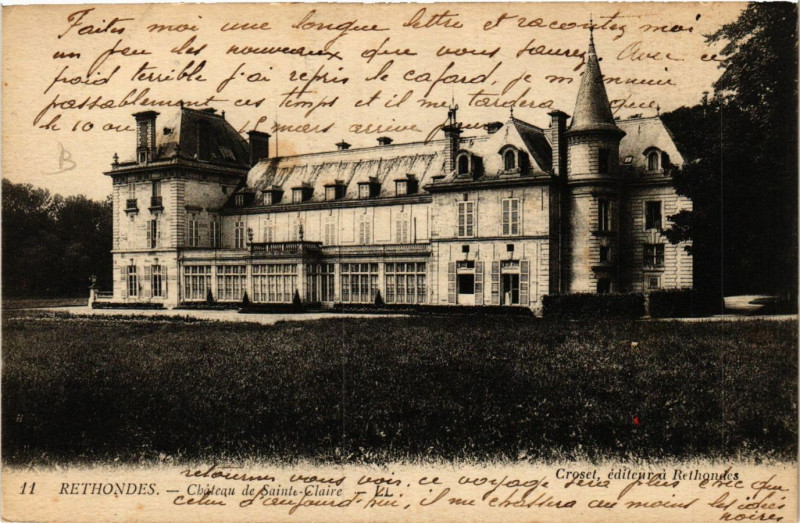 Faites moi une longue lettre et racontez moi
un peu les nouveaux que vous saurez. Avec ce
froid terrible j'ai repris le cafard, je m'ennuie
passablement ces temps et il me tardera que
le 10 ou mars arrive pour
B
retourner vous voir, ce voyage sera plus que
celui d'aujourd'hui, il me chassera au moins les idées
noires
11 RETHONDES. — Château de Sainte-Claire — LL
Croset, éditeur à Rethondes